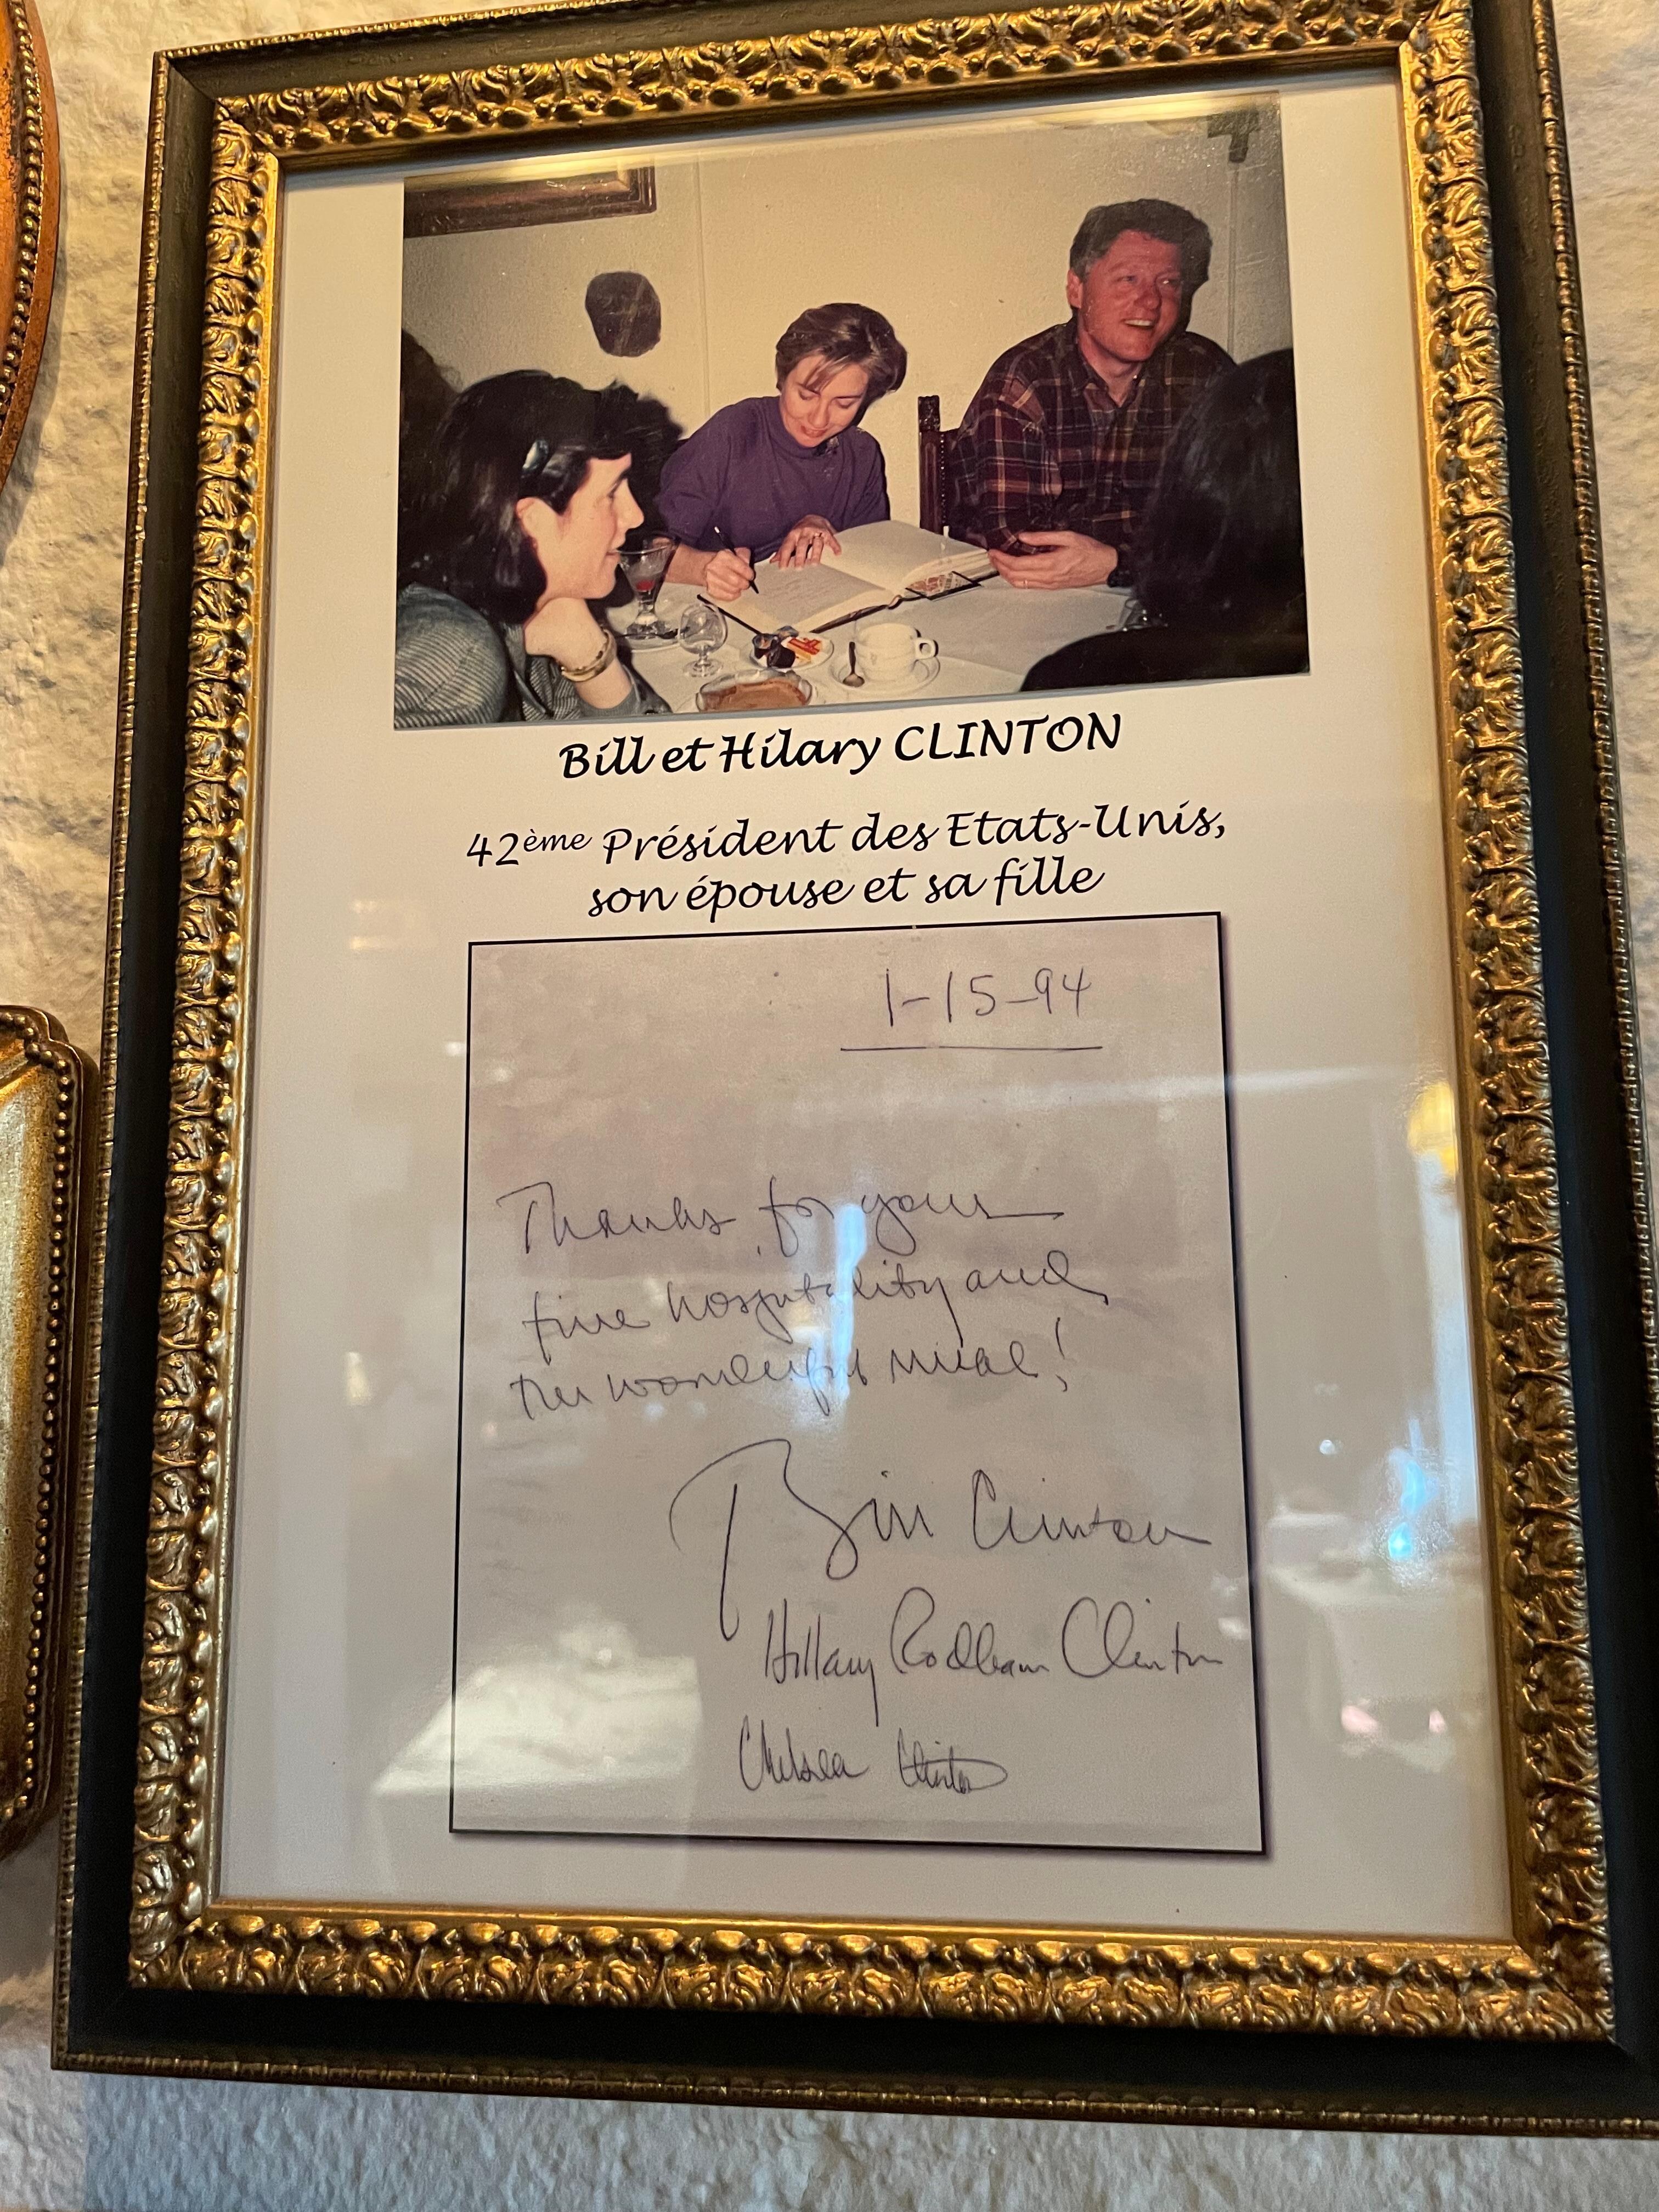 Bill et Hilary CLINTON
42ème Président des Etats-Unis,
son épouse et sa fille
1-15-94
Thanks for your
fine hospitality and
the wonderful meal!
Bill Clinton
Hillary Rodham Clinton
Chelsea Clinton